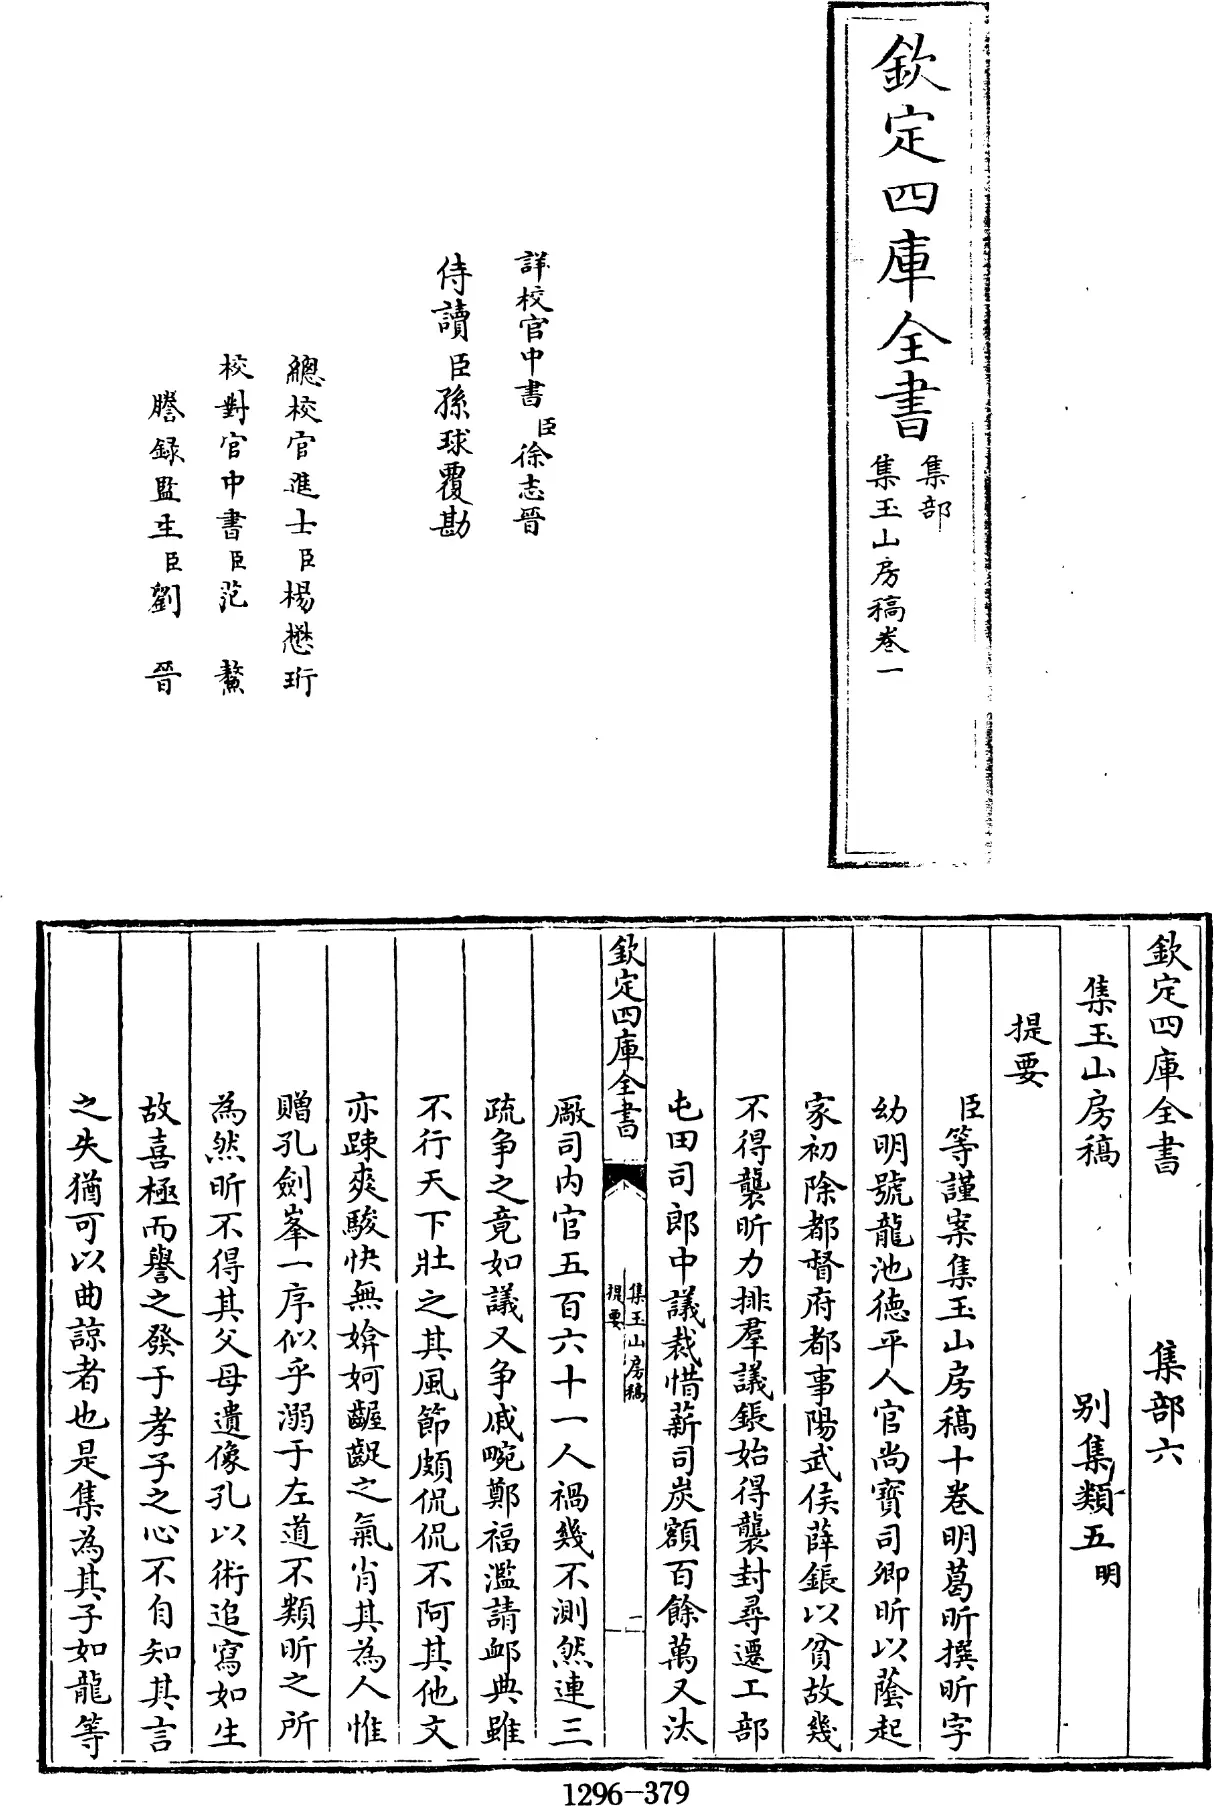 欽定四庫全書
集部
集玉山房稿卷一
詳校官中書臣徐志晉
侍讀臣孫球覆勘
總校官進士臣楊懋珩
校對官中書臣范鏊
謄録監生臣劉晉
欽定四庫全書 集部六
集玉山房稿 別集類五明
提要
臣等謹案集玉山房稿十卷明葛昕撰昕字
幼明號龍池德平人官尚寶司卿昕以蔭起
家初除都督府都事陽武侯薛鋹以貧故幾
不得襲昕力排羣議鋹始得襲封尋遷工部
屯田司郎中議裁惜薪司炭額百餘萬又汰
欽定四庫全書
集玉山房稿
提要
二
厰司内官五百六十一人禍幾不測然連三
疏争之竟如議又争戚畹鄭福濫請䘏典雖
不行天下壯之其風節頗侃侃不阿其他文
亦踈爽駿快無媕婀齷齪之氣肖其為人惟
贈孔劍峯一序似乎溺于左道不類昕之所
為然昕不得其父母遺像孔以術追寫如生
故喜極而譽之發于孝子之心不自知其言
之失猶可以曲諒者也是集為其子如龍等
1296-379